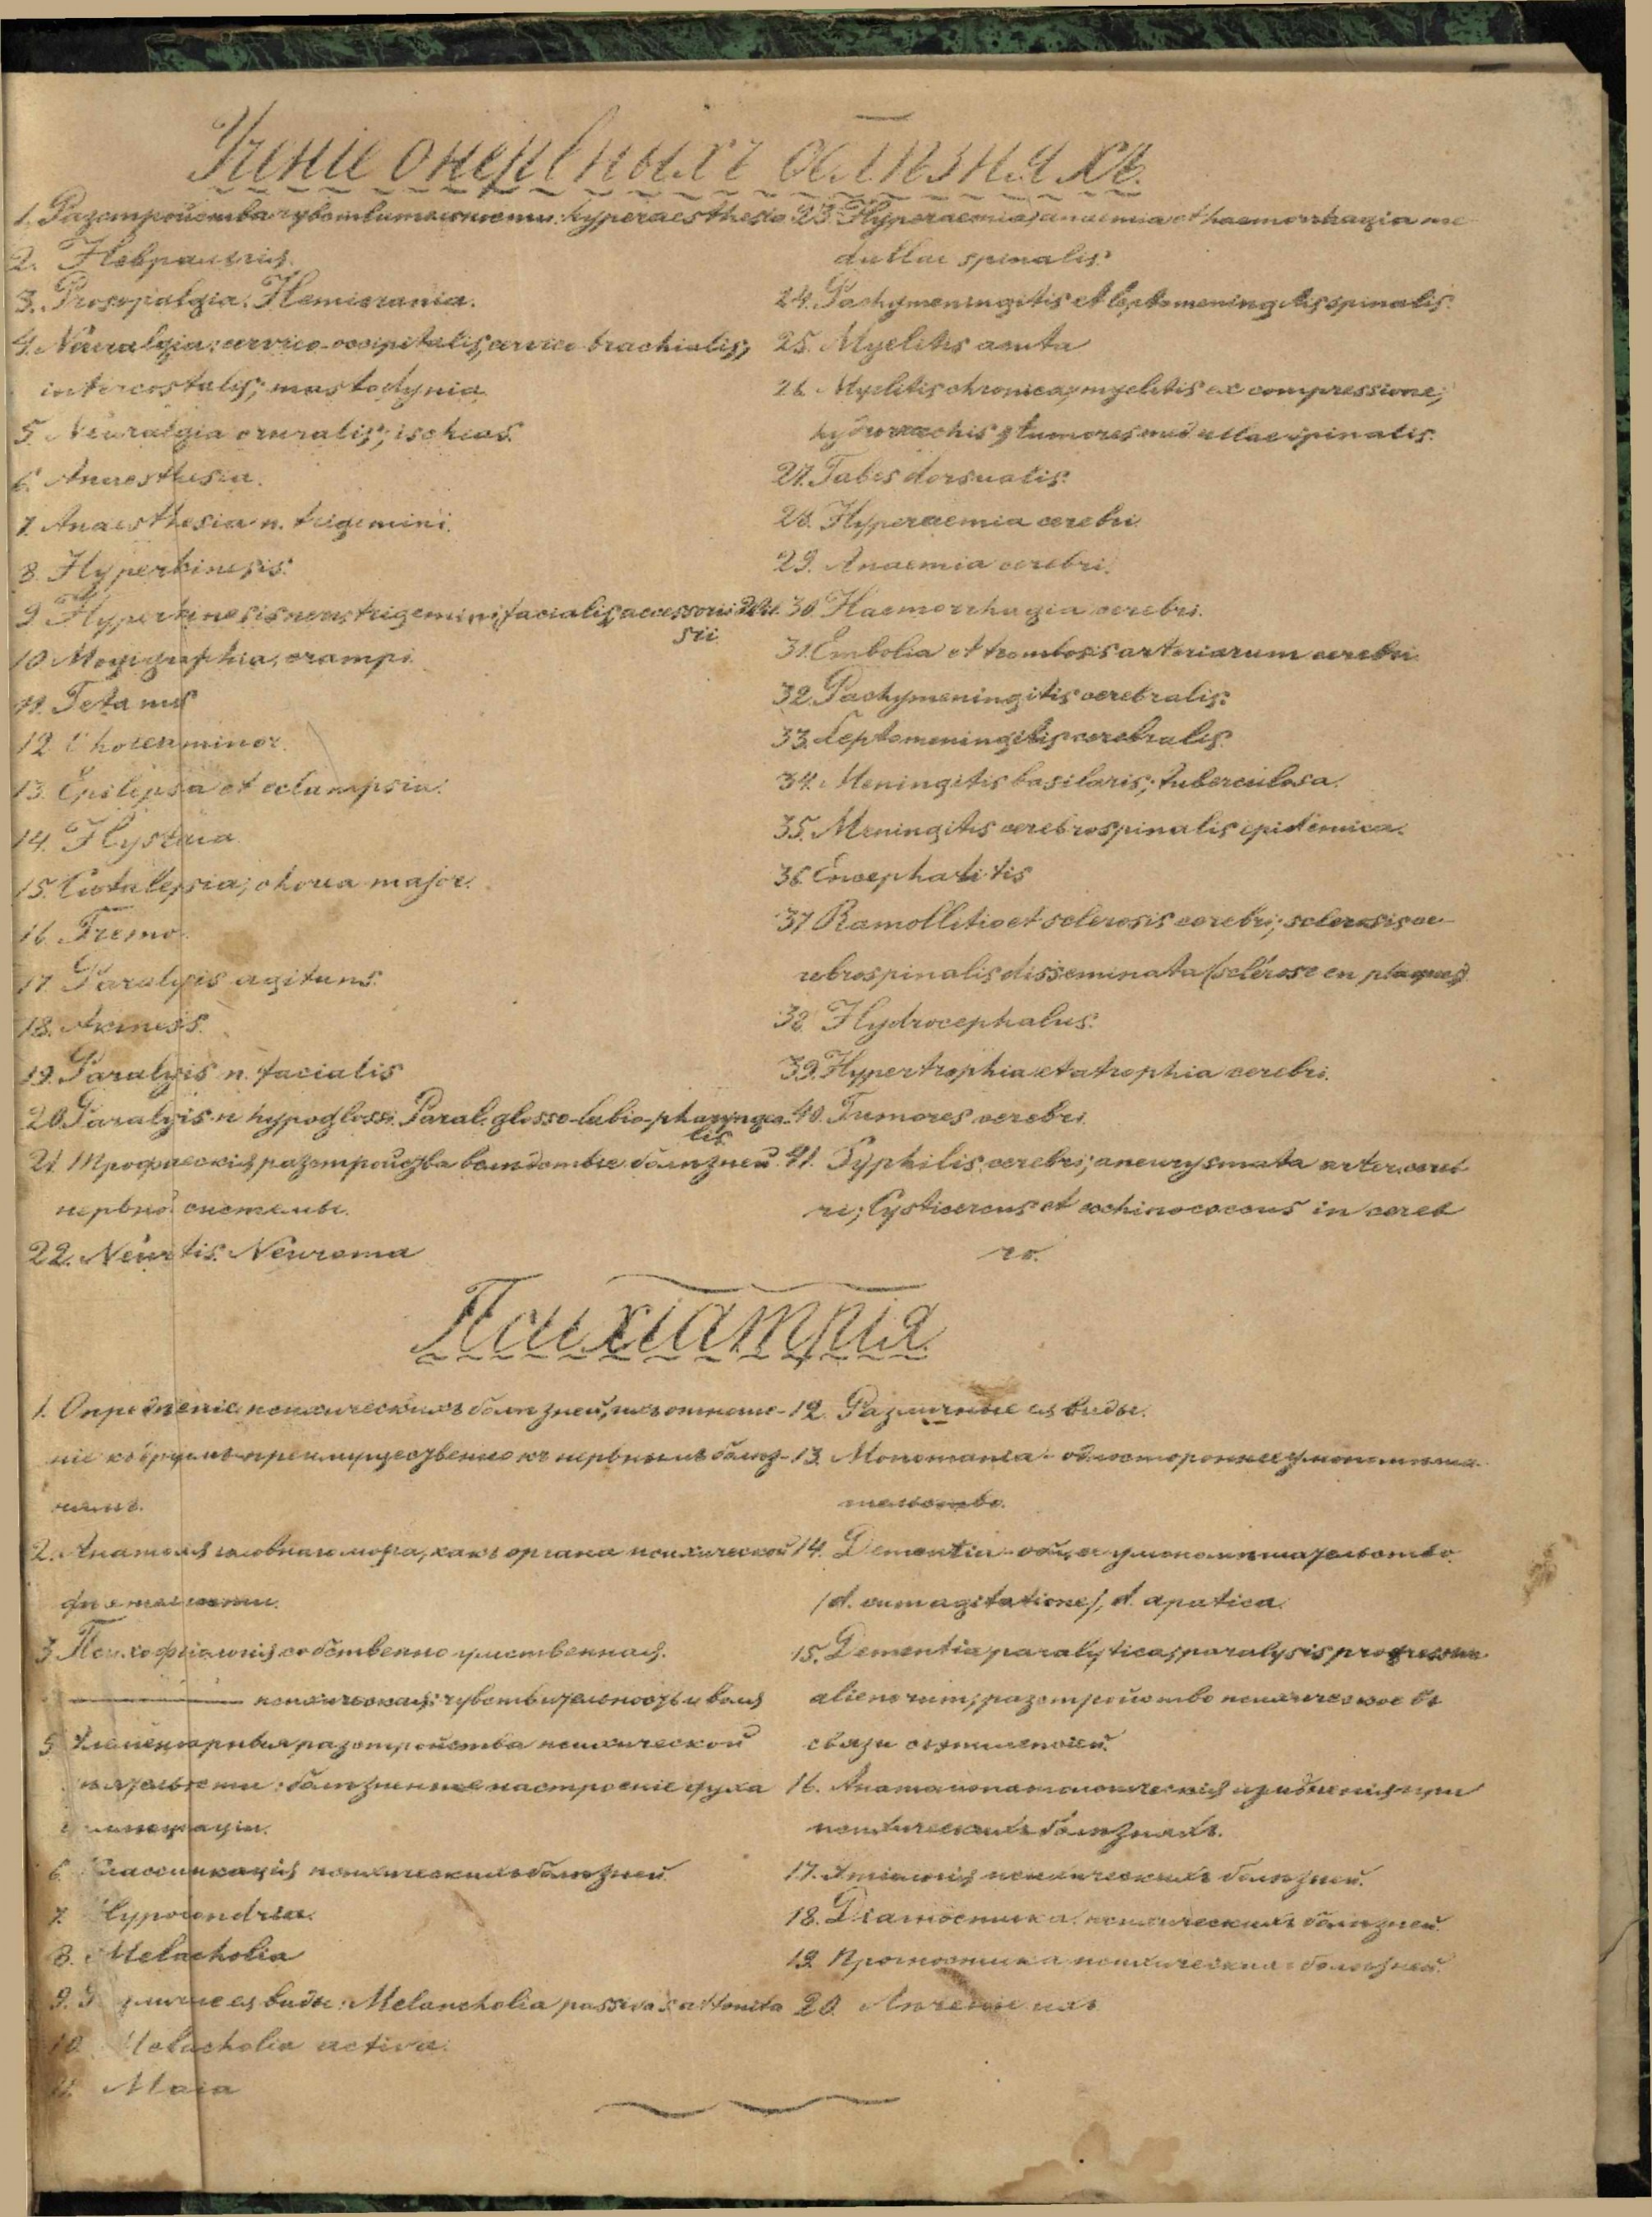 Ученіе о нервныхъ болѣзняхъ.
1. Разстройства чувствительности: hyperaesthesia
2. Невралгія.
3. Prosopalgia. Hemicrania.
4. Neuralgia: cervico-occipitalis, cervico-brachialis,
intercostalis; mastodynia
5. Neuralgia cruralis; ischias.
6. Anaesthesia.
7. Anaesthesia n. trigemini.
8. Hyperkinesis.
9. Hyperkinesis nerv. trigemini, facialis, accessorii Willi
sii
10. Mogigraphia, crampi.
11. Tetanus
12. Chorea minor.
13. Epilepsia et eclampsia.
14. Hysteria
15. Catalepsia; chorea major.
16. Tremor.
17. Paralysis agitans.
18. Akinesis.
19. Paralysis n. facialis
20. Paralysis n hypoglossi. Paral. glosso-labio-pharyngea
lis
21. Трофическія разстройства вслѣдствіе болѣзней
нервной системы.
22. Neuritis. Neuroma
23. Hyperaemia, anaemia et haemorrhagia me
dullae spinalis.
24. Pachymeningitis et leptomeningitis spinalis.
25. Myelitis acuta
26. Myelitis chronica; myelitis ex compressione;
hydrorrachis; tumores medullae spinalis.
27. Tabes dorsualis.
28. Hyperaemia cerebri.
29. Anaemia cerebri.
30. Haemorrhagia cerebri.
31. Embolia et trombosis arteriarum cerebri.
32. Pachymeningitis cerebralis.
33. Leptomeningitis cerebralis.
34. Meningitis basilaris; tuberculosa.
35. Meningitis cerebrospinalis epidemica.
36. Encephalitis
37. Ramollitio et sclerosis cerebri; sclerosis ce-
rebrospinalis disseminata (sclérose en plaques)
38. Hydrocephalus.
39. Hypertrophia et atrophia cerebri.
40. Tumores cerebri.
41. Syphilis cerebri; aneurysmata arter. cereb
ri; Cysticercus et echinococcus in cereb
ro.
Психіатрія.
1. Опредѣленіе психическихъ болѣзней, ихъ отноше-
ніе къ другимъ преимущественно къ нервнымъ болѣз-
нямъ.
2. Анатомія головнаго мозга, какъ органа психической
дѣятельности.
3. Психофізіологія собственно умственная.
психическая: чувствительность и воля
5 Элементарныя разстройства психической
болѣзненное настроеніе духа
6. психическихъ болѣзней.
7. Hypocondria.
8. Melacholia
9. ея виды: Melancholia passiva s. attonita
10. Melacholia activa.
11. Maia
12. Различные ея виды.
13. Monomania - одностороннее умопомѣша
тельство.
14. Dementia - общее умопомѣшательство.
(d. cum agitatione), d. apatica.
15. Dementia paralytica, paralysis progressiva
alienorum; разстройство психическое въ
связи съ эпилепсіей.
16. Анатомопатологическія измѣненія при
психическихъ болѣзняхъ.
17. Этіологія психическихъ болѣзней.
18. Діагностика психическихъ болѣзней.
19. Прогностика психическихъ болѣзней.
20. Лѣченіе ихъ